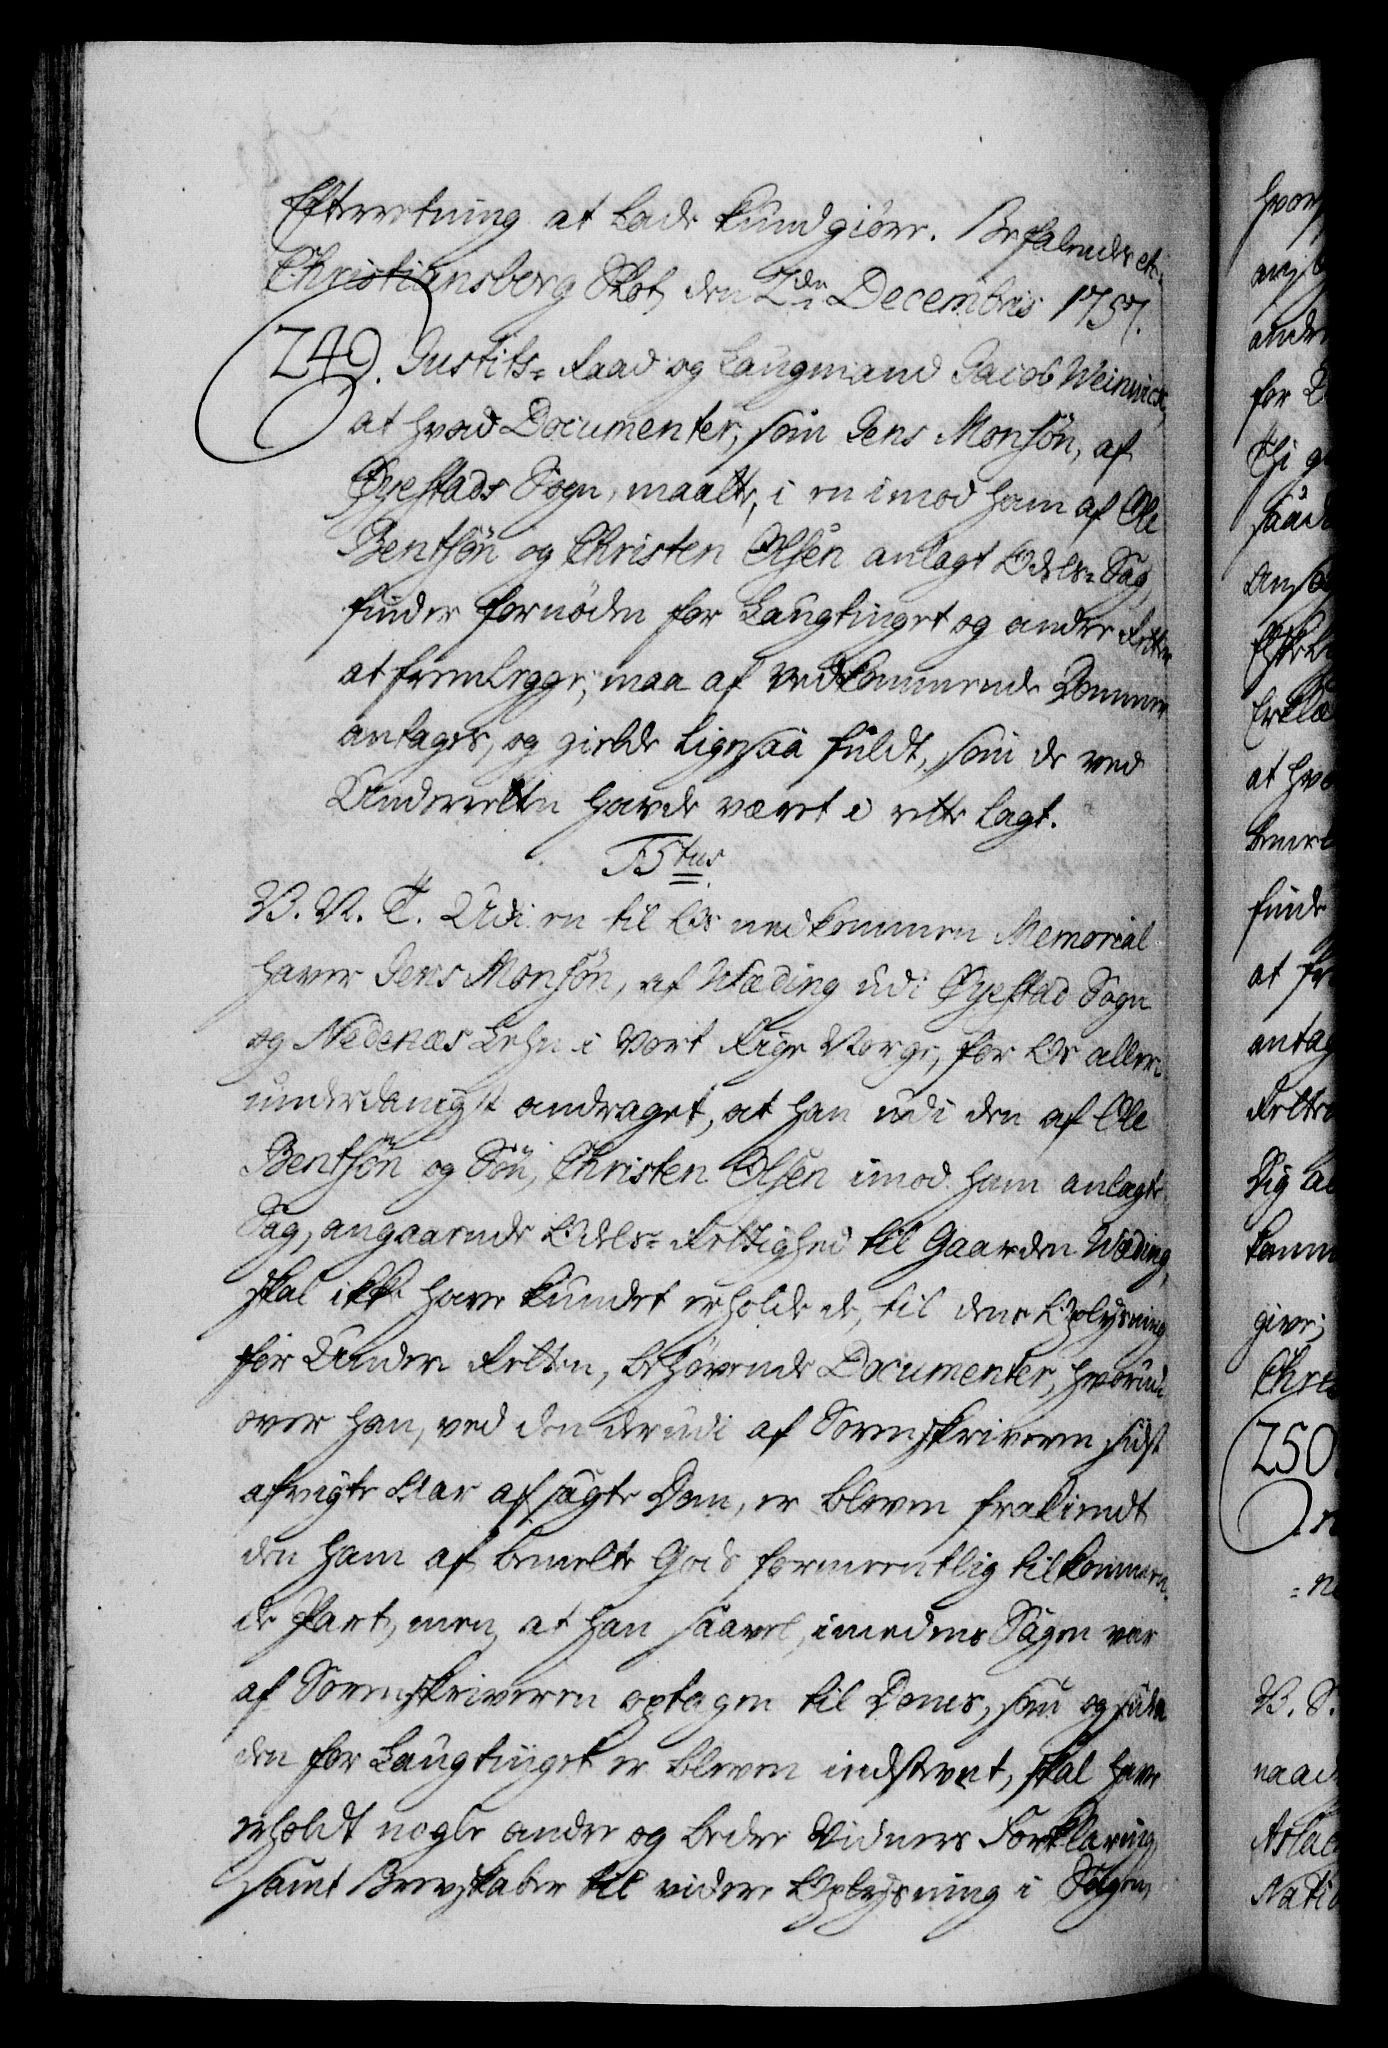 Efterretning at lade kundgiøre. Befalende etc.
Christiansborg Slot, den 2den Decembris 1757.
249. Justits=Raad og Laugmand Jacob Weinwich,
at hvad Documenter, som Jens Monsön, af
Øyestads Sogn, maatte, i en imod ham af Ole
Bentsön og Christen Olsen anlagt Odels=Sag,
finde fornøden for Laugtinget og andre Retter
at fremlegge, maa af vedkommende Dommer
antages, og gielde ligesaa fuldt, som de ved
Underretten havde været i rette lagt.
F5tus
V. V. T. Udi en til Os nedkommen Memorial
haver Jens Monsön, af Wæding udi Øyestad Sogn
og Nedenæs Lehn i Vort Rige Norge, for Os aller=
underdanigst andraget, at han udi den af Ole
Bentsön og Søn, Christen Olsen imod ham anlagte
Sag, angaaende Odels=Rettighed til Gaarden Wæding,
skal ikke have kundet erholde de, til dens Oplysning
for Under Retten, behøvende Documenter, hvorud
over han, ved den derudi af Sorenskriveren sidst
afvigte Aar afsagte Dom, er bleven frakiendt
den ham af bemelte Gods formeentlig tilkommen=
de Part, men, at han saavel, imedens Sagen var
af Sorenskriveren optagen til Doms, som og siden
den for Laugtinget er bleven indstevnt, skal have
erholdt nogle andre og bedre Vidners Forklaring,
samt Brevskaber til videre Oplysning i Sagen,
250.